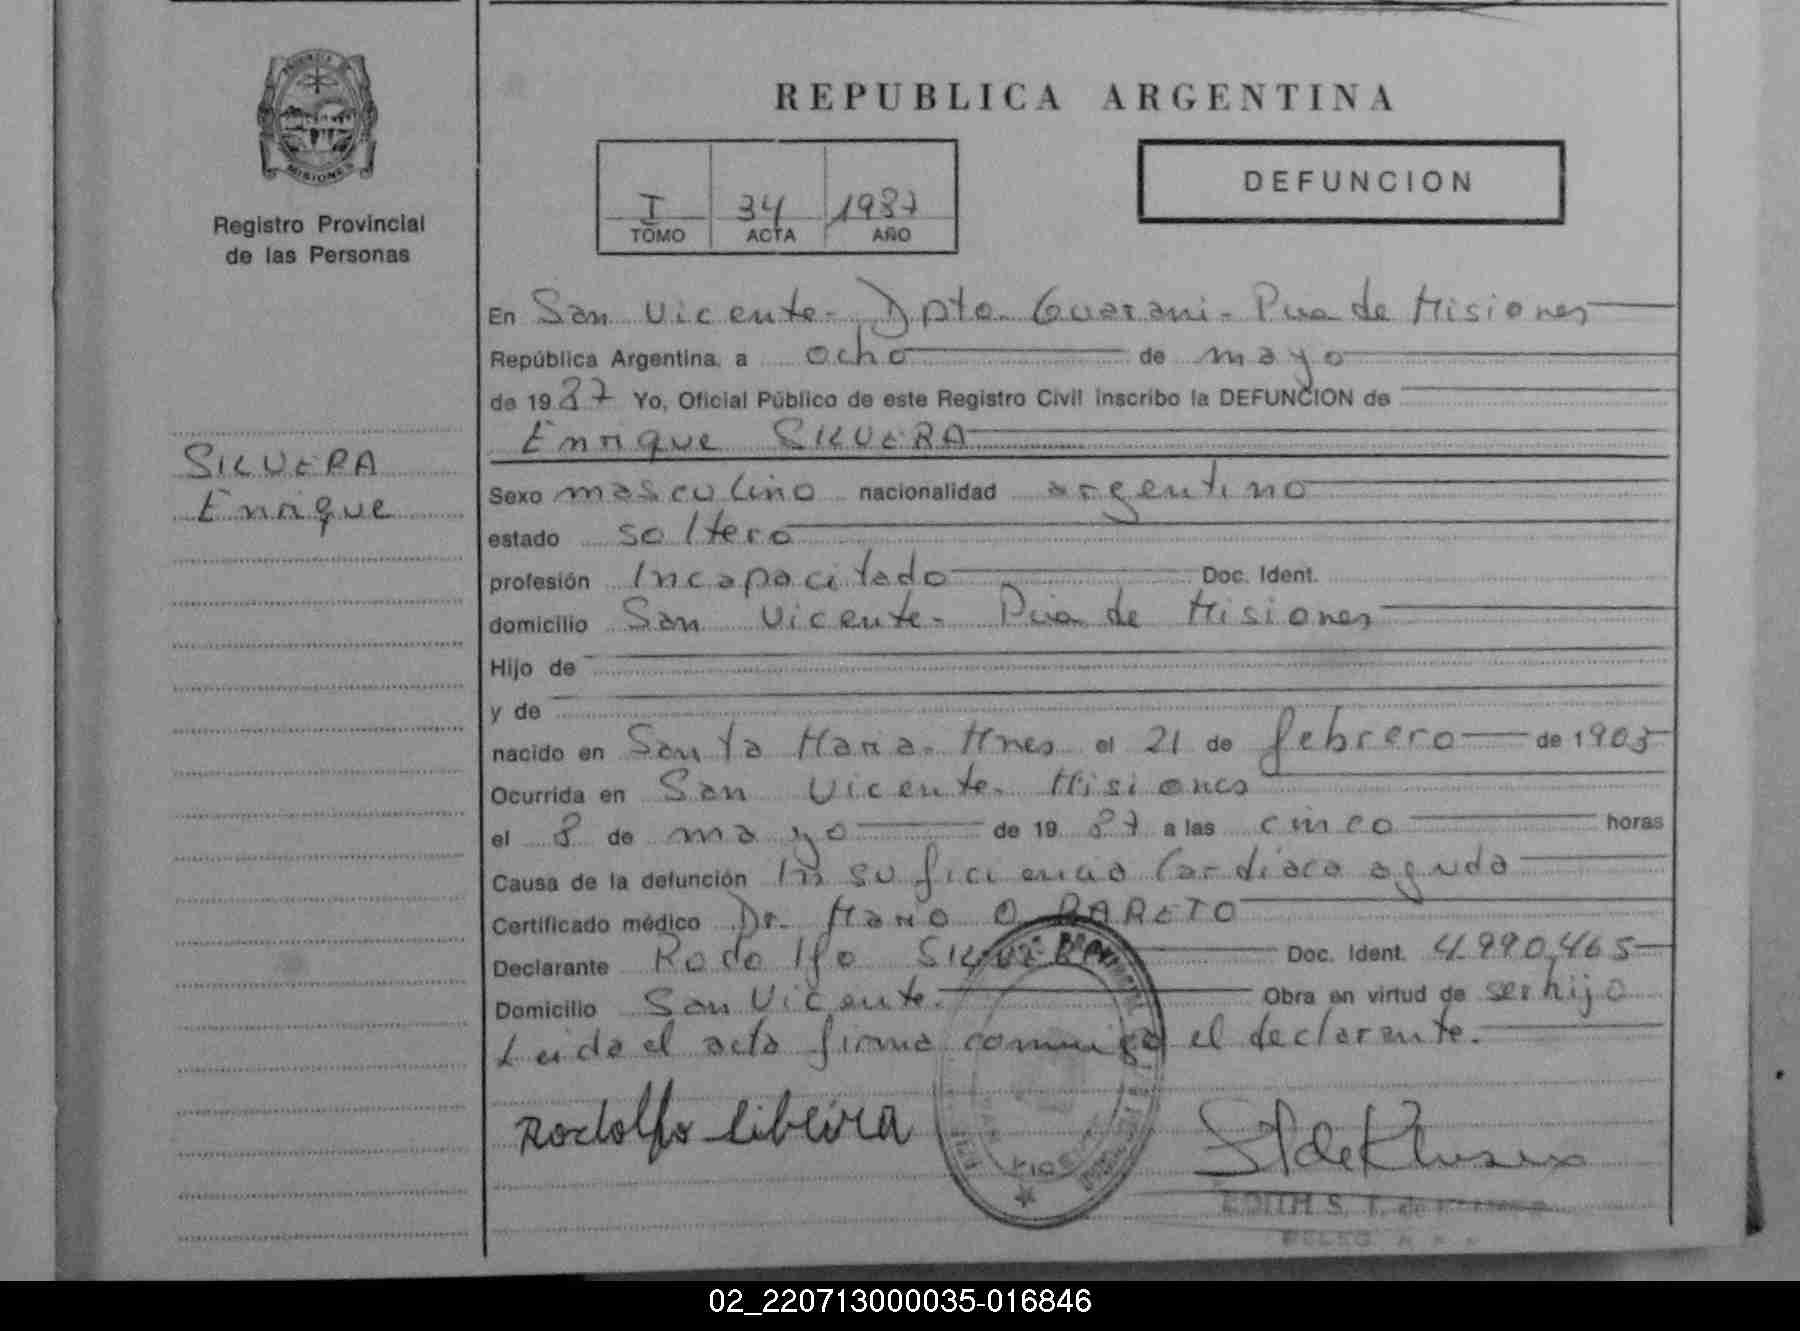 PROVINCIA DE
MISIONES
Registro Provincial
de las Personas
SILVERA
Enrique
REPUBLICA ARGENTINA
I 34 1987
TOMO ACTA AÑO
DEFUNCION
En San Vicente- Dpto. Guarani- Pcia de Misiones
República Argentina, a ocho de mayo
de 1987 Yo, Oficial Público de este Registro Civil inscribo la DEFUNCION de
Enrique SILVERA
Sexo masculino nacionalidad argentino
estado soltero
profesión Incapacitado Doc. Ident.
domicilio San Vicente- Pcia de Misiones
Hijo de
y de
nacido en Santa Maria- Mnes el 21 de febrero de 1903
Ocurrida en San Vicente- Misiones
el 8 de mayo de 1987 a las cinco horas
Causa de la defunción Insuficiencia Cardiaca aguda
Certificado médico Dr. Mario O. PARETO
Declarante Rodolfo SILVERA Doc. Ident. 4.990.465
Domicilio San Vicente. Obra en virtud de ser hijo
Leida el acta firma conmigo el declarante.
Rodolfo libeira
EDITH S. T. de
02_220713000035-016846